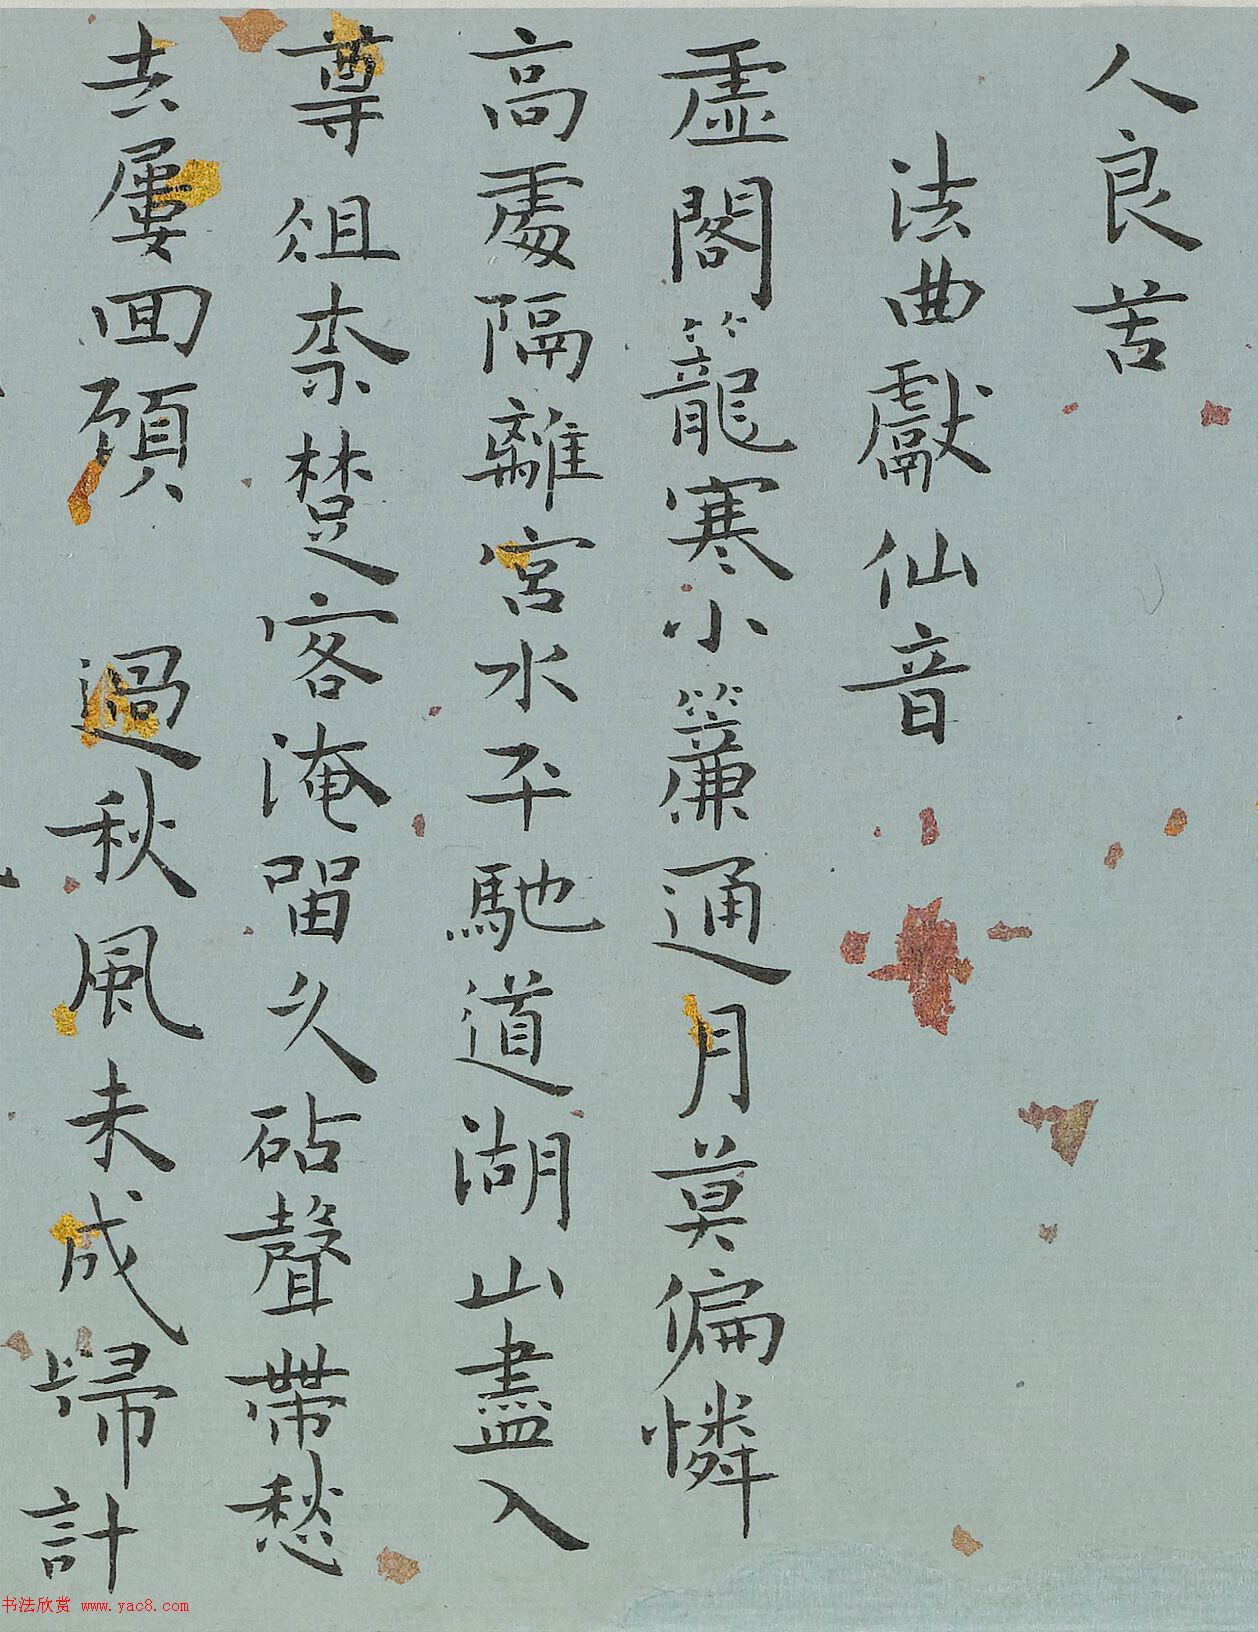 人良苦
法曲獻仙音
虛閣籠寒小簾通月莫偏憐
高處隔離宮水平馳道湖山盡入
尊俎柰楚客淹留久砧聲帶愁
去屢回顧 過秋風未成歸計
书法欣赏 www.yac8.com